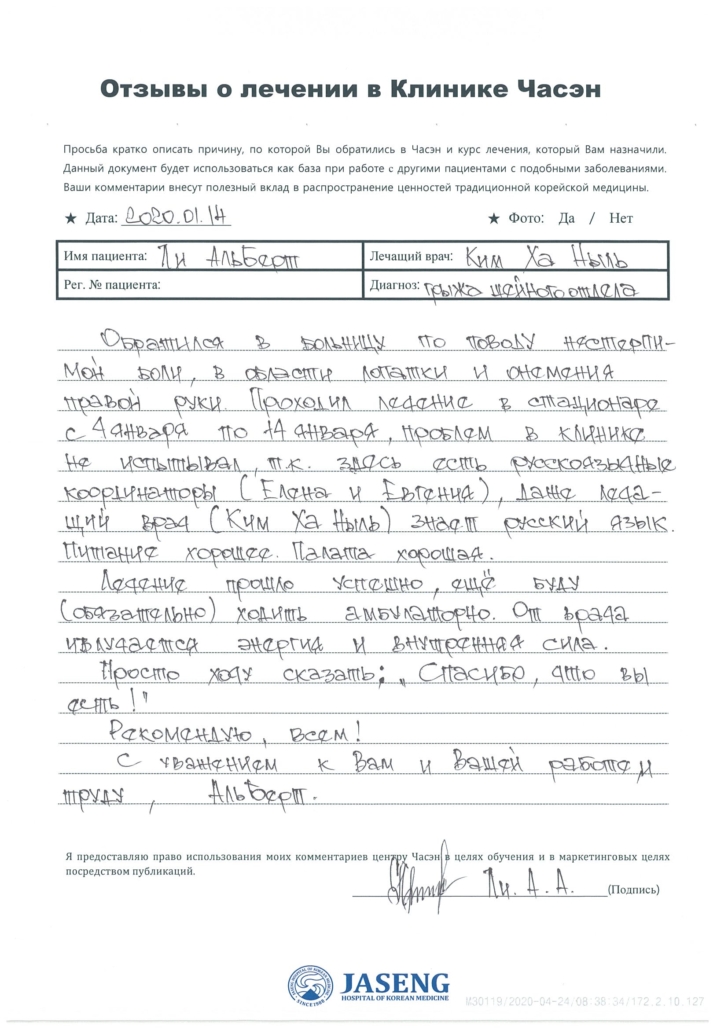 Отзывы о лечении в Клинике Часэн
Просьба кратко описать причину, по которой Вы обратились в Часэн и курс лечения, который Вам назначили.
Данный документ будет использоваться как база при работе с другими пациентами с подобными заболеваниями.
Ваши комментарии внесут полезный вклад в распространение ценностей традиционной корейской медицины.
★ Дата: 2020.01.14 ★ Фото: Да / Нет
Имя пациента: Ли Альберт Лечащий врач: Ким Ха Ныль
Рег. № пациента: Диагноз: грыжа шейного отдела
Обратился в больницу по поводу нестерпи-
мой боли, в области лопатки и онемения
правой руки. Проходил лечение в стационаре
с 4 января по 14 января, проблем в клинике
не испытывал, т.к. здесь есть русскоязычные
координаторы (Елена и Евгения), даже леча-
щий врач (Ким Ха Ныль) знает русский язык.
Питание хорошее. Палата хорошая.
Лечение прошло успешно, ещё буду
(обязательно) ходить амбулаторно. От врача
излучается энергия и внутренняя сила.
Просто хочу сказать: „Спасибо, что вы
есть!"
Рекомендую, всем!
С уважением к Вам и Вашей работе и
труду, Альберт.
Я предоставляю право использования моих комментариев центру Часэн в целях обучения и в маркетинговых целях
посредством публикаций.
Ли. А. А. (Подпись)
JASENG HOSPITAL OF KOREAN MEDICINE
SINCE1988
JASENG
HOSPITAL OF KOREAN MEDICINE
M30119/2020-04-24/08:38:34/172.2.10.127